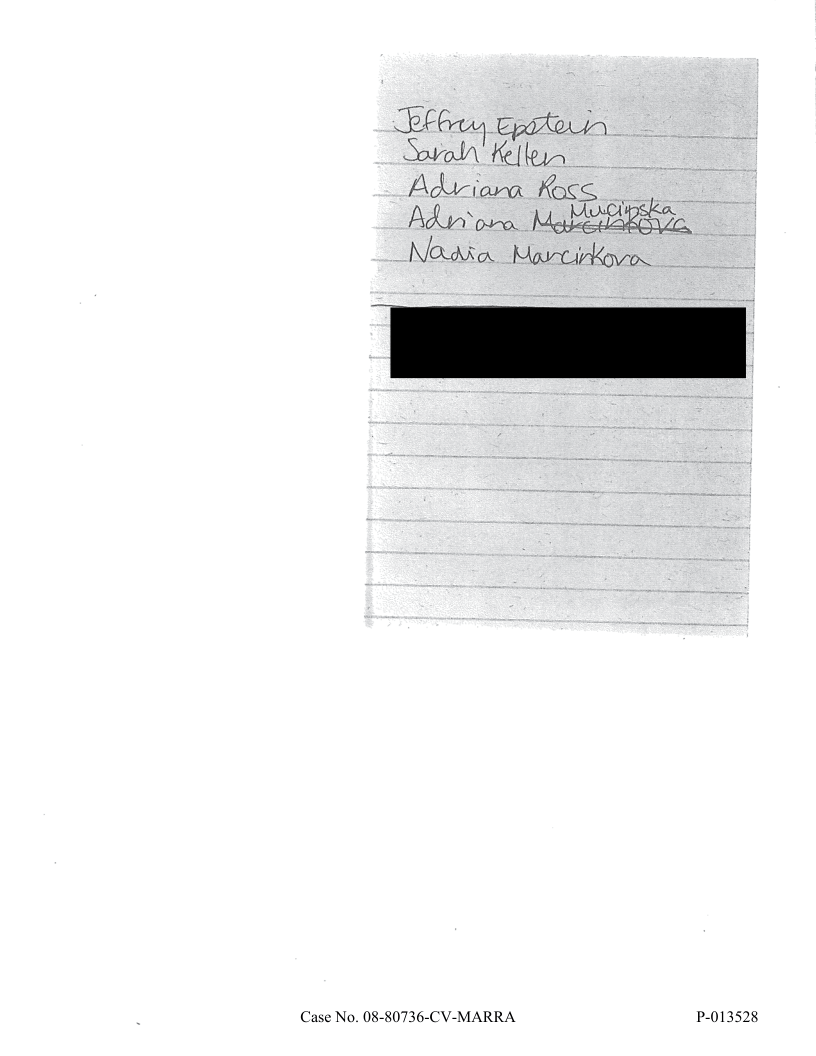 Jeffrey Epstein
Sarah Kellen
Adriana Ross
Adriana Marcinkova Mucinska
Nadia Marcinkova
Case No. 08-80736-CV-MARRA P-013528